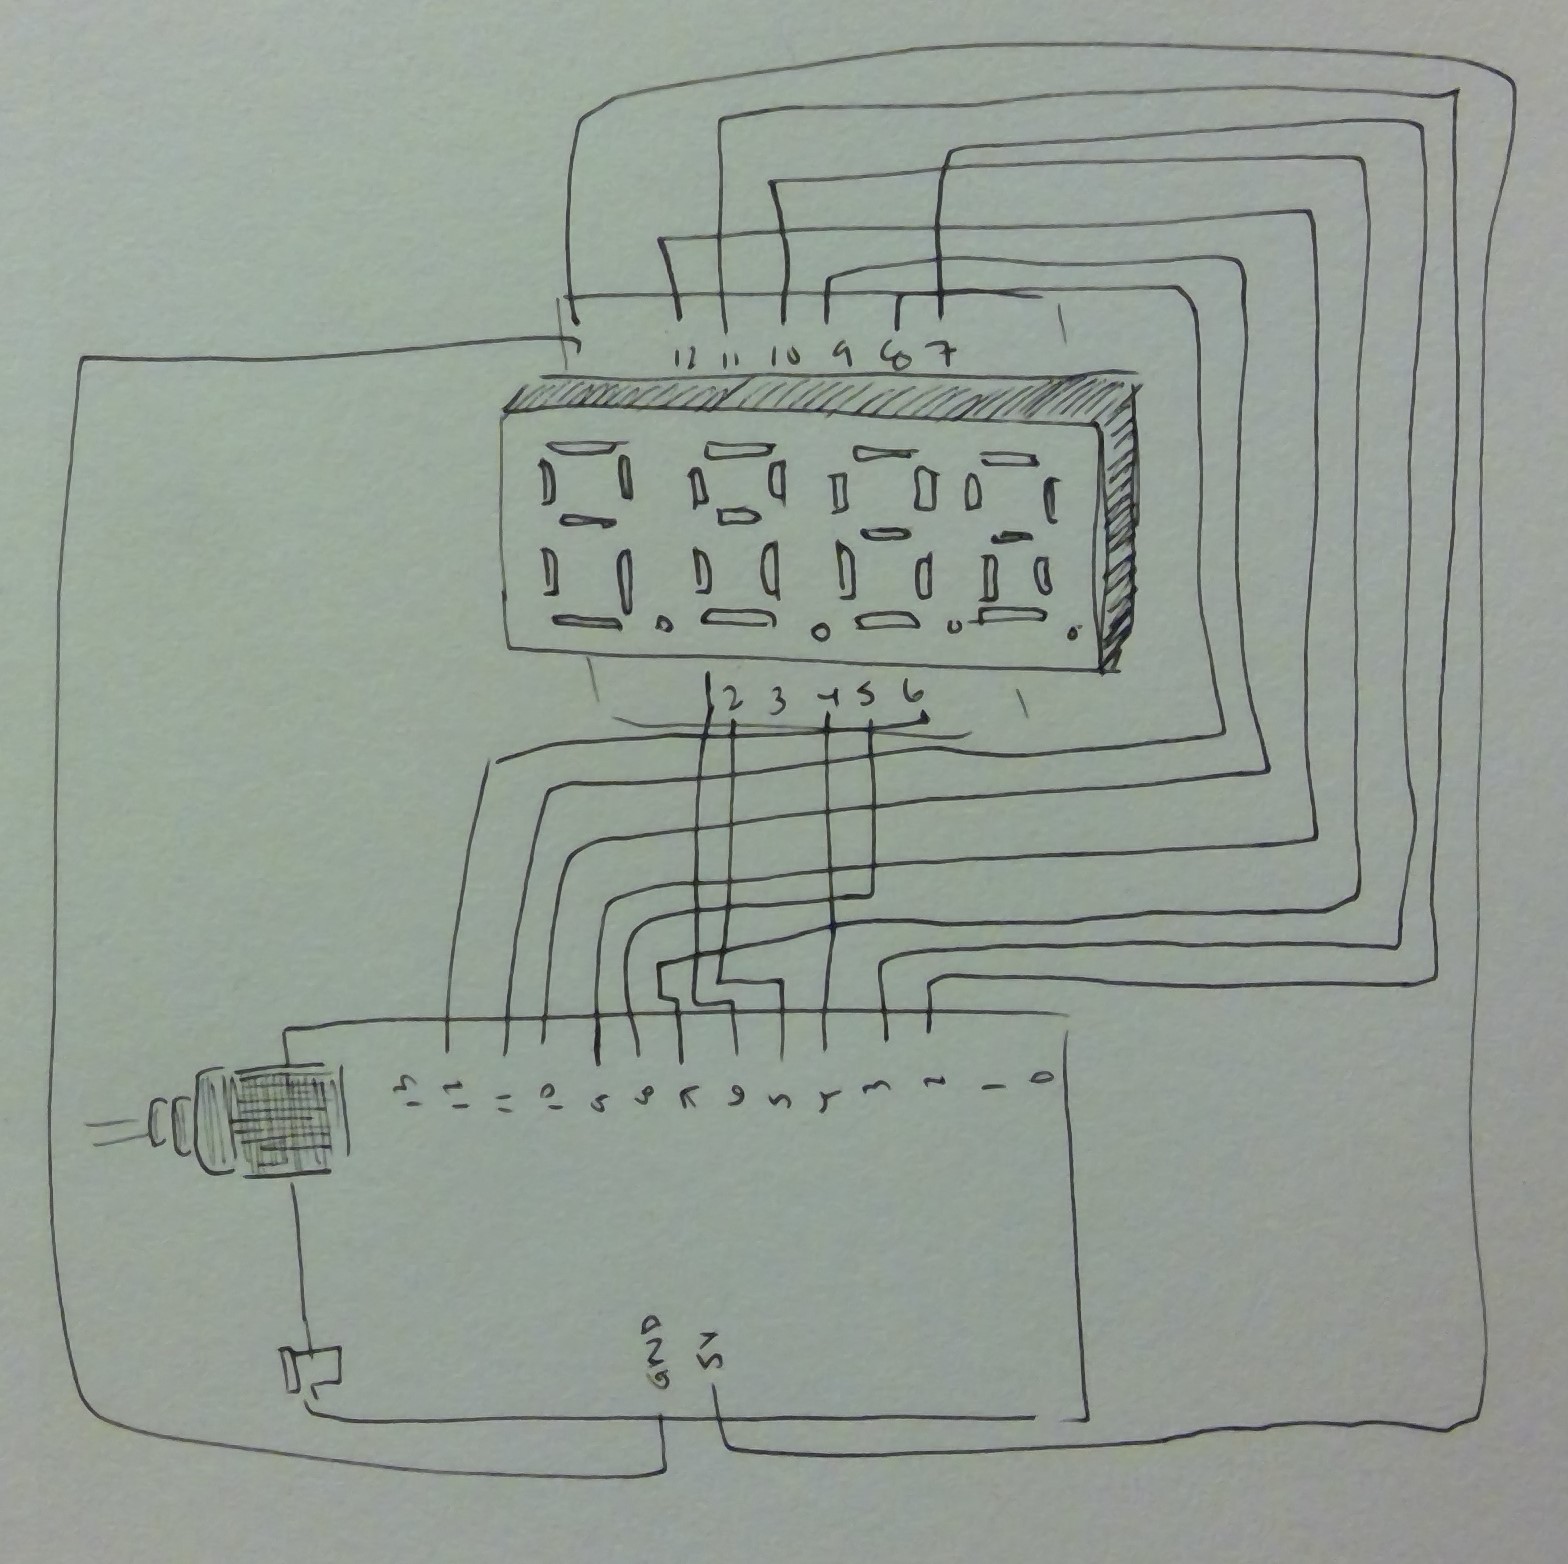 12 11 10 9 8 7
1 2 3 4 5 6
13 12 11 10 9 8 7 6 5 4 3 2 1 0
GND 5V